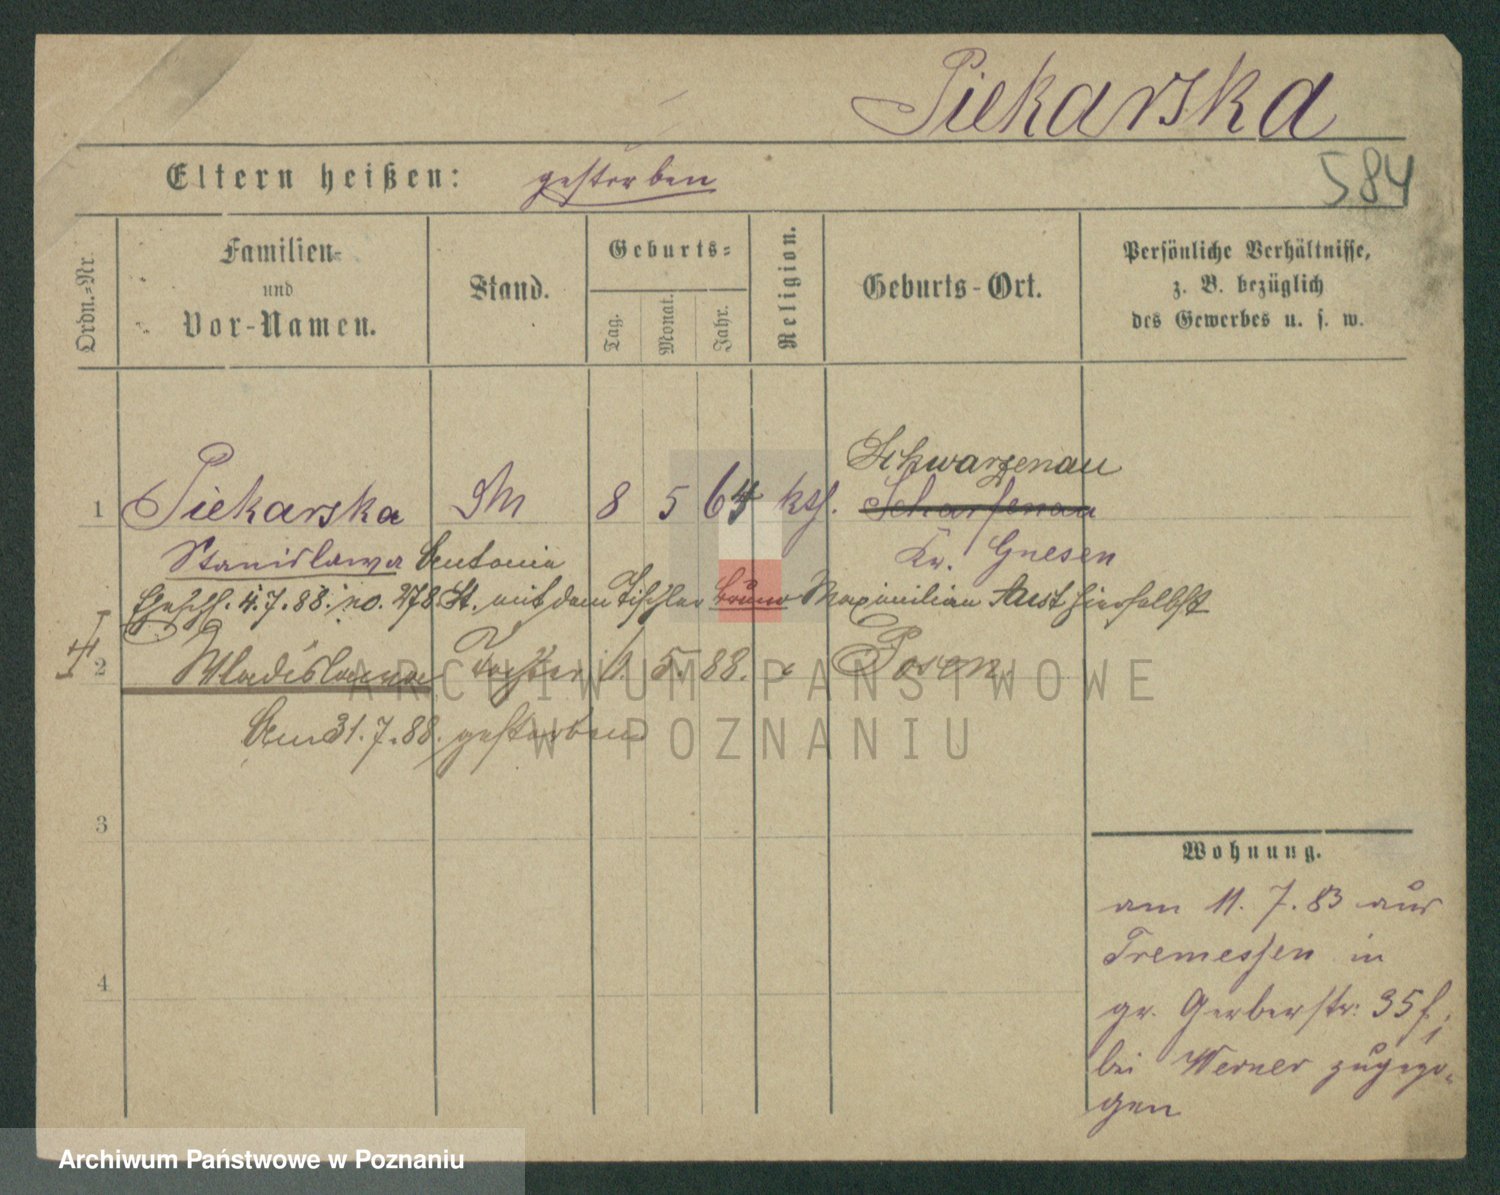 Piekarska
584
Eltern heißen: gestorben
Ordn.=Nr.
Familien-
und
Vor-Namen.
Stand.
Geburts=
Tag.
Monat.
Jahr.
Religion.
Geburts-Ort.
Persönliche Verhältnisse,
z. B. bezüglich
des Gewerbes u. s. w.
Schwarzenau
1 Piekarska 8 5 64 kth. Scharfenau
Stanislawa Antonia Kr. Gnesen
4.7.88. no. 278 St. mit dem Tischler Bruno Maximilian Aust hierselbst
2 Wladislawa Tochter 5. 88. Posen
Am 31.7.88. gestorben
3
4
Wohnung.
am 11. 7. 83 aus
Tremessen in
gr. Gerberstr: 35
bei Werner zugezo-
gen
ARCHIWUM PAŃSTWOWE
W POZNANIU
Archiwum Państwowe w Poznaniu